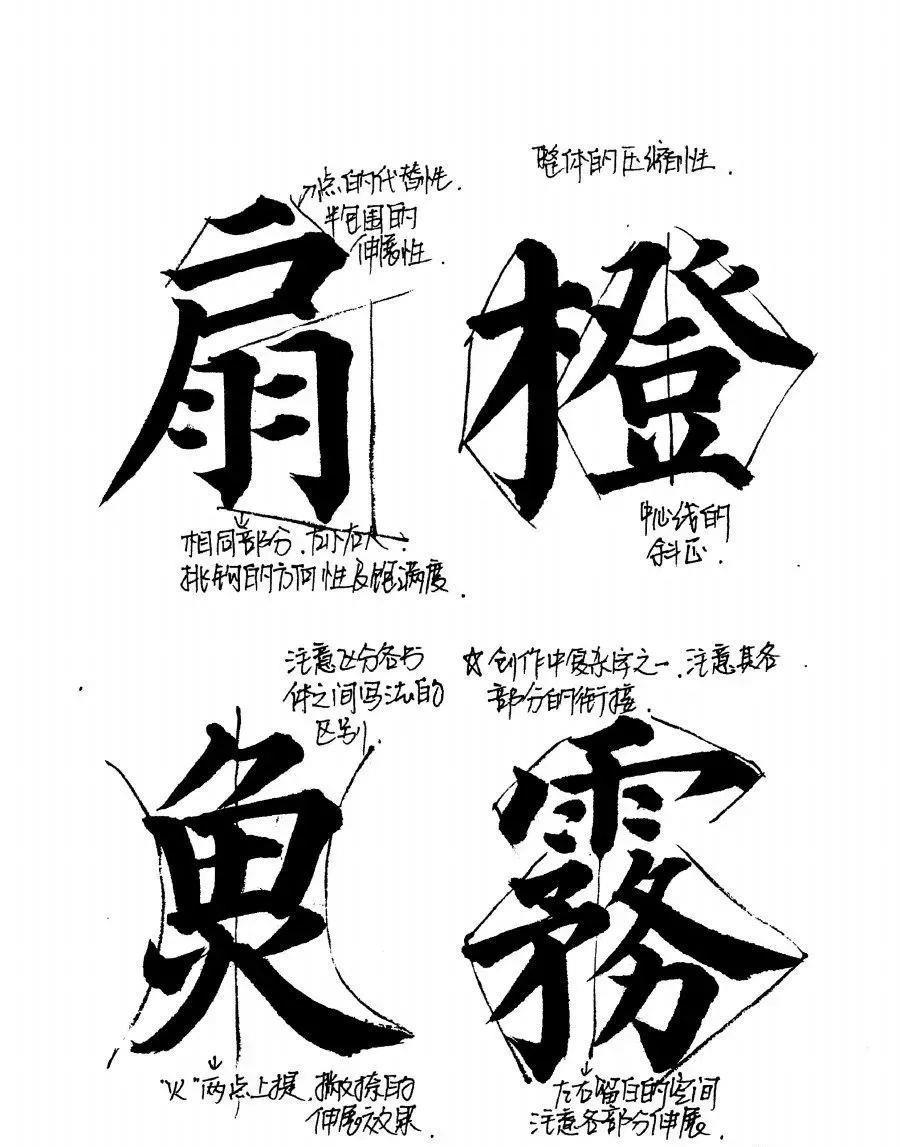 点的代替性.
半包围的
伸展性.
整体的压缩性.
扇
橙
相同部分.左小右大.
挑钩的方向性及饱满度.
中心线的
斜正.
注意区分各书
体之间写法的
区别.
☆创作中复杂字之一.注意其各
部分的衔接.
魚
霧
"火"两点上提.撇捺的
伸展效果.
左右留白的空间
注意各部分伸展.